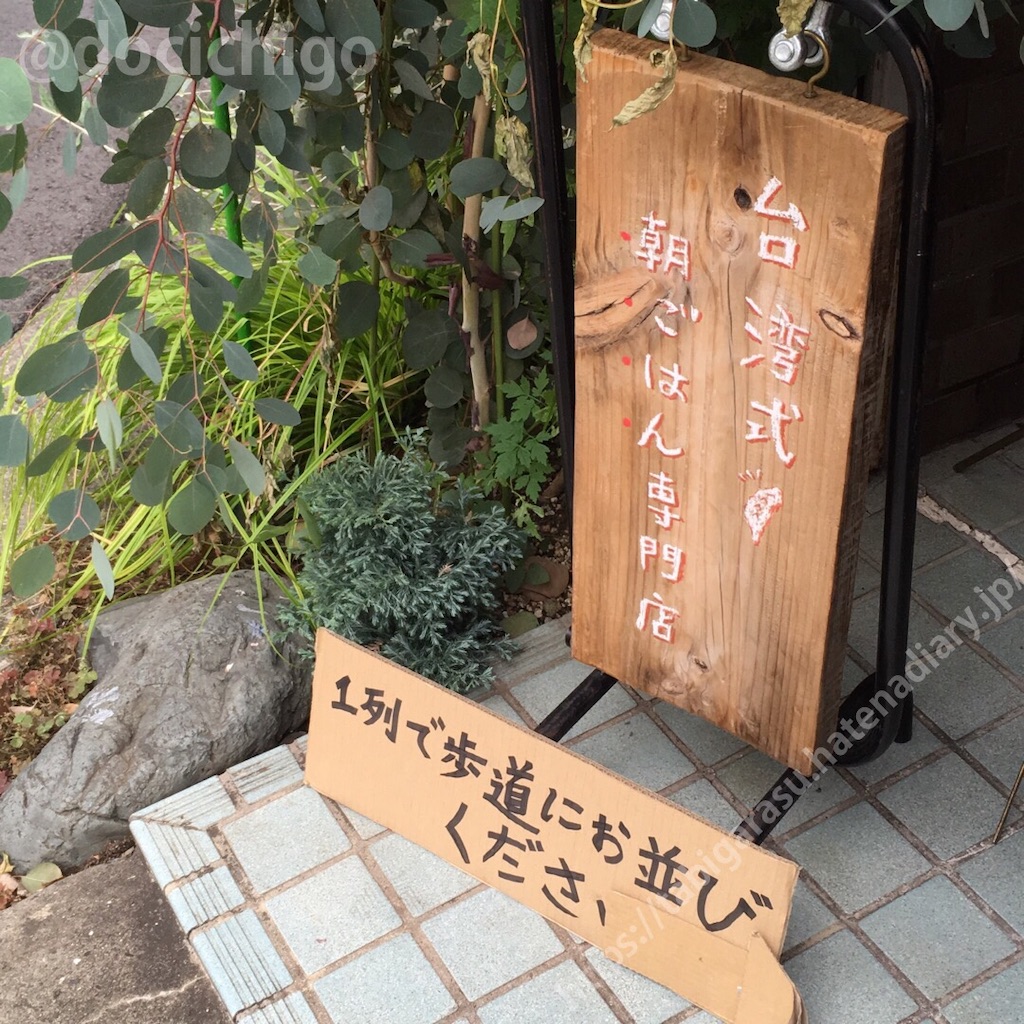 @docichigo
台湾式
朝ごはん専門店
1列で歩道にお並び
ください
https://ichigarasu.hatenadiary.jp/